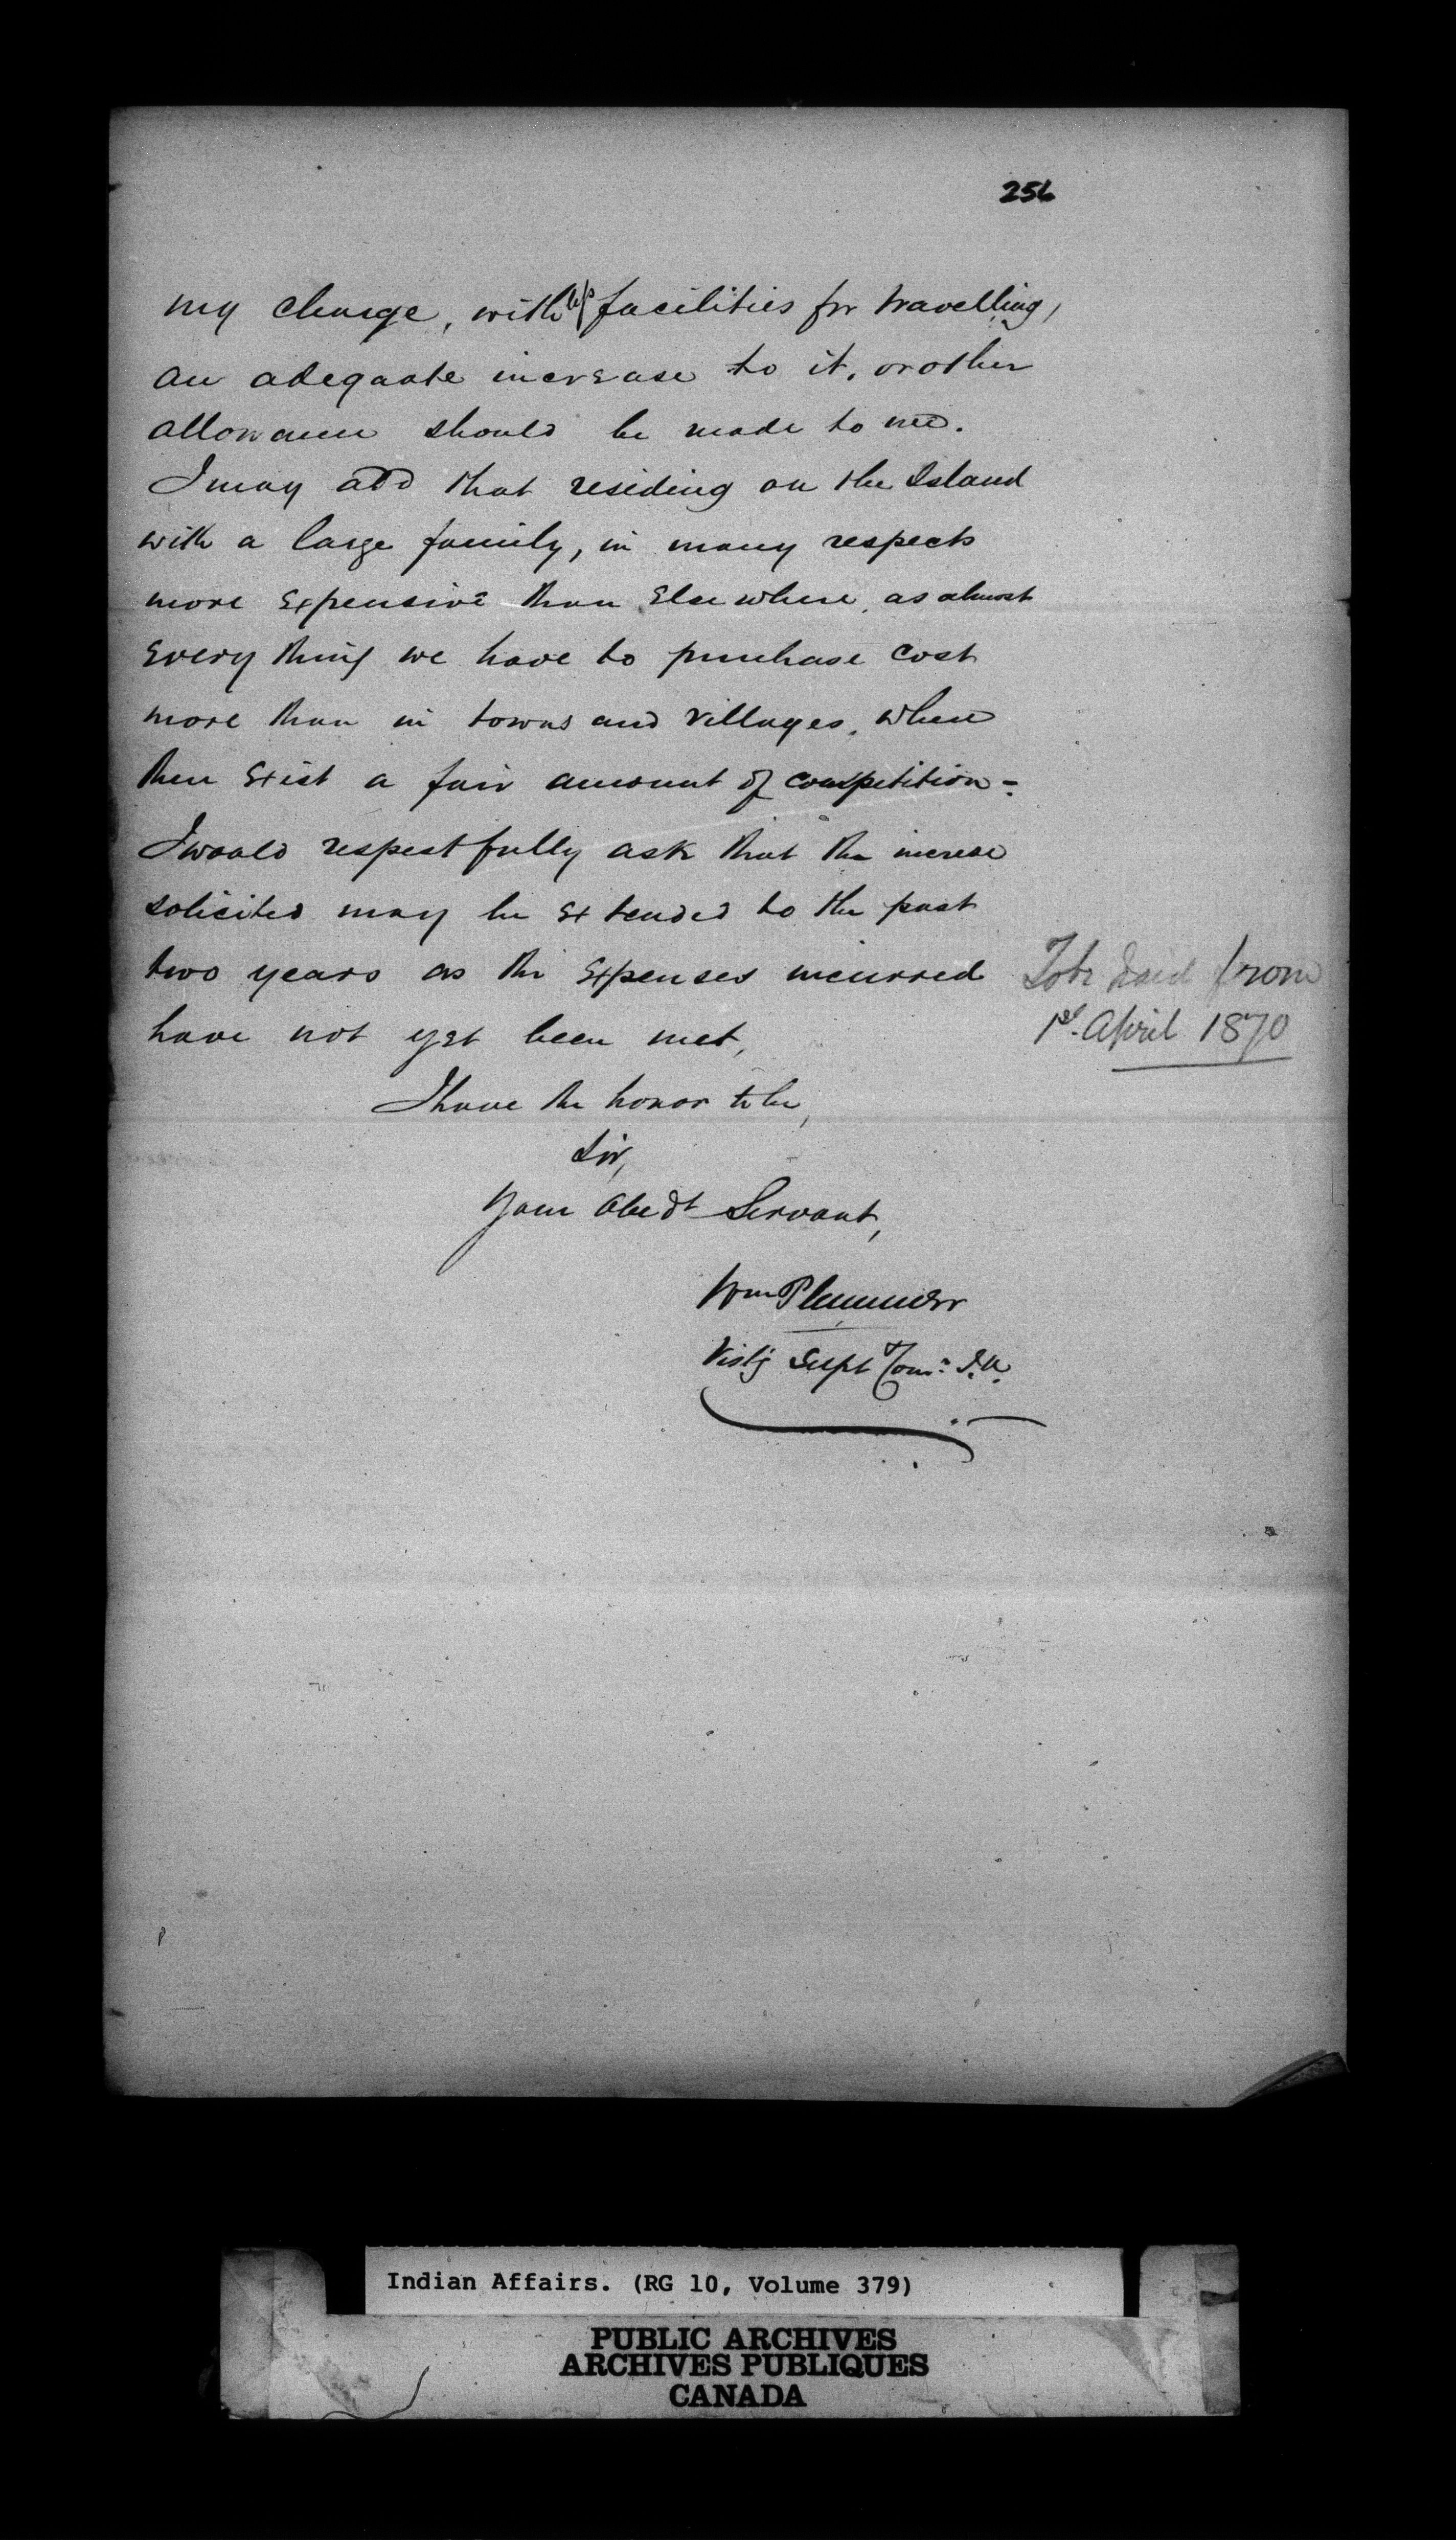 256
my charge, with less facilities for travelling,
an adequate increase to it, or other
allowance should be made to me.
I may add that residing on the Island
with a large family, in many respects
more expensive than elsewhere, as almost
every thing we have to purchase cost
more than in towns and villages, where
there exist a fair amount of competition =
I would respectfully ask that the increase
solicited may be extended to the past
two years as the expenses incurred
have not yet been met,
To be paid from
1st. April 1870
I have the honor to be,
Sir,
Your Obedt Servant,
Wm Plummer
Vistg Supt & Comr. I.A.
Indian Affairs. (RG 10, Volume 379)
PUBLIC ARCHIVES
ARCHIVES PUBLIQUES
CANADA